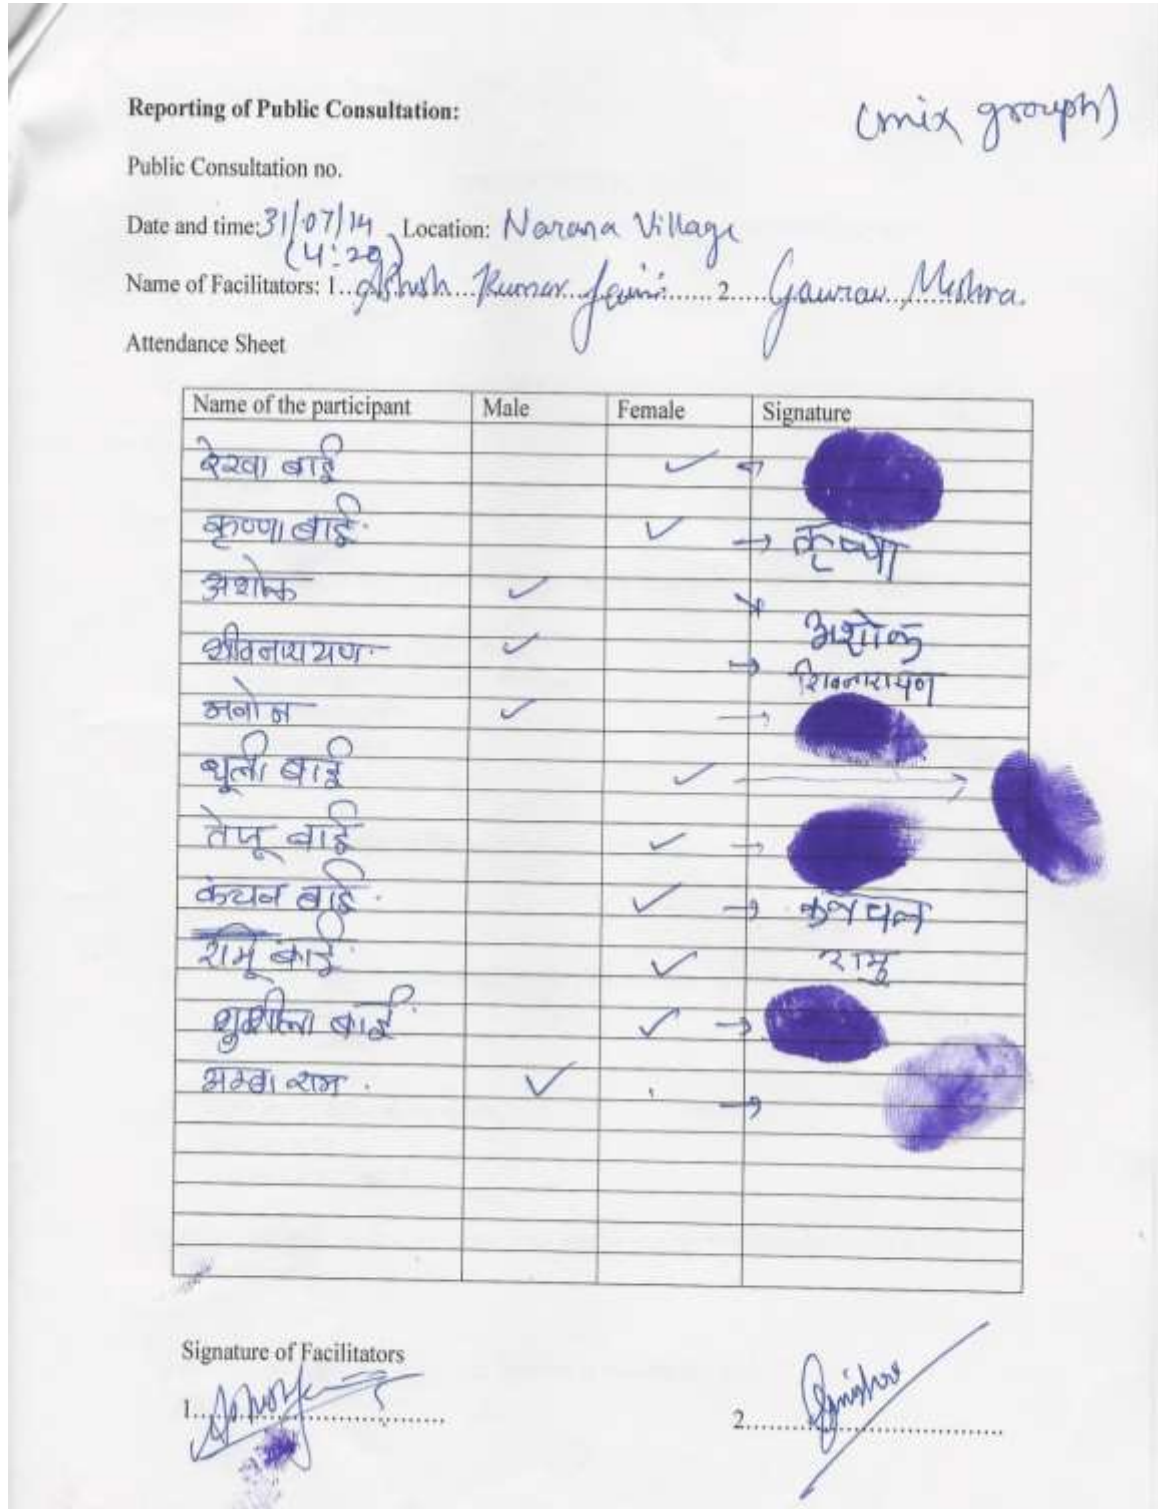 (mix grouph)
Reporting of Public Consultation:
Public Consultation no.
Date and time: 31/07/14 (4:20) Location: Narana Village
Name of Facilitators: 1..Ashish Kumar Jain....... 2....Gaurav Mishra.
Attendance Sheet
Name of the participant Male Female Signature
रेखा बाई ✓
कृष्णा बाई ✓ → कृष्णा
अशोक ✓ अशोक
शीवनारायण ✓ → शिवनारायण
✓ →
धूली बाई ✓ →
तेजू बाई ✓ →
कंचन बाई ✓ →
रामू बाई ✓ रामु
शुशीला बाई ✓ →
अम्बा राम ✓ →
Signature of Facilitators
1.
2.